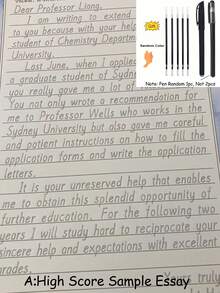 Score Sample Essay
Dear Professor Liang,
I am writing to extend
to you because with your help
student of Chemistry Depart
University.
Last June, when I applied
a graduate student of Sydney
you really gave me a lot of
You not only wrote a recommendation for
me to Professor Wells who works in the
Sydney University but also gave careful
and patient instructions on how to fill the
application forms and write the application
letters.
It is your unreserved help that enables
me to obtain this splendid opportunity o
further education. For the following two
years I will study hard to reciprocate your
sincere help and expectations with excellent
grades.
Yours truly
Gift
Random Color
Note: Pen Random 1pc, Not 2pcs
A:High Score Sample Essay